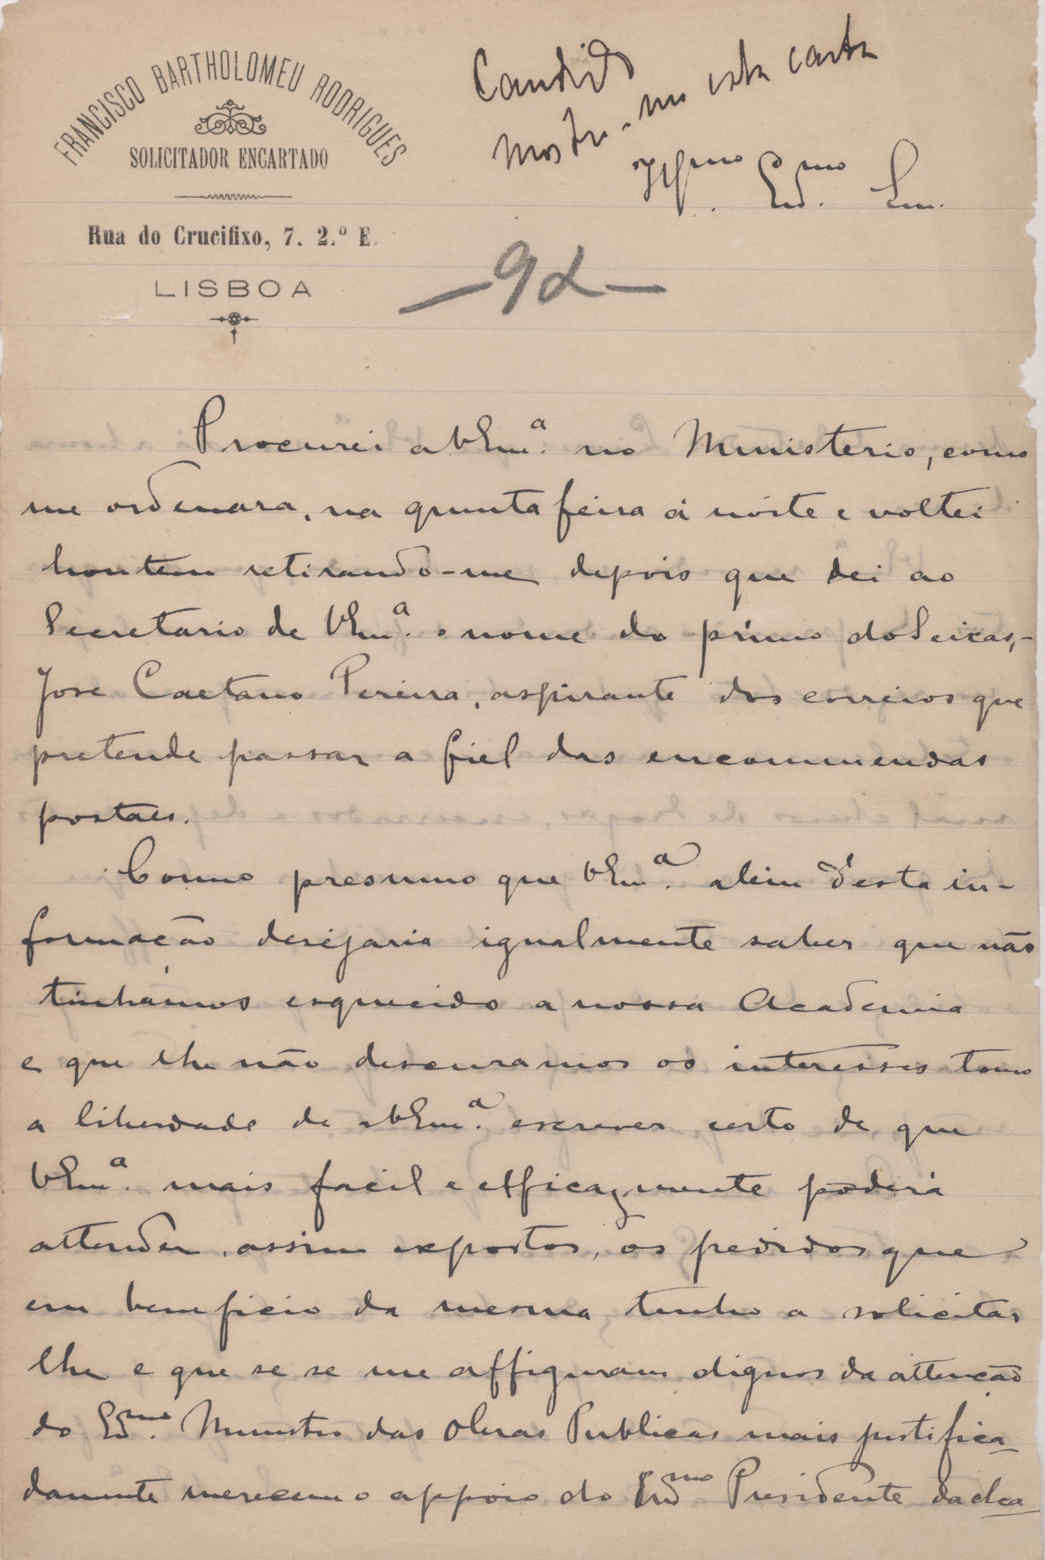 FRANCISCO BARTHOLOMEU RODRIGUES
SOLICITADOR ENCARTADO
Rua do Crucifixo, 7. 2.º E.
LISBOA
Candido
mostre-me esta carta
Illmo Exmo Snr.
Procurei a VExa. no Ministerio, como
me ordenara, na quinta feira á noite e voltei
hontem retirando-me depois que dei ao
Secretario de VExa. o nome do primo do Seixas,-
José Caetano Pereira, aspirante dos correios que
pretende passar a fiel das encommendas
postaes.
Como presumo que VExa. alem d'esta in-
formação desejaria igualmente saber que não
tinhamos esquecido a nossa Academia
e que lhe não descuramos os interesses tomo
a liberdade de a VExa. escrever certo de que
VExa. mais facil e efficazmente poderá
attender, assim expostos, os pedidos que
em beneficio da mesma tenho a solicitar
lhe e que se se me affiguram dignos da attenção
do Exmo. Ministro das Obras Publicas mais justifica-
damente merecem o appoio do Exmo Presidente da Aca-